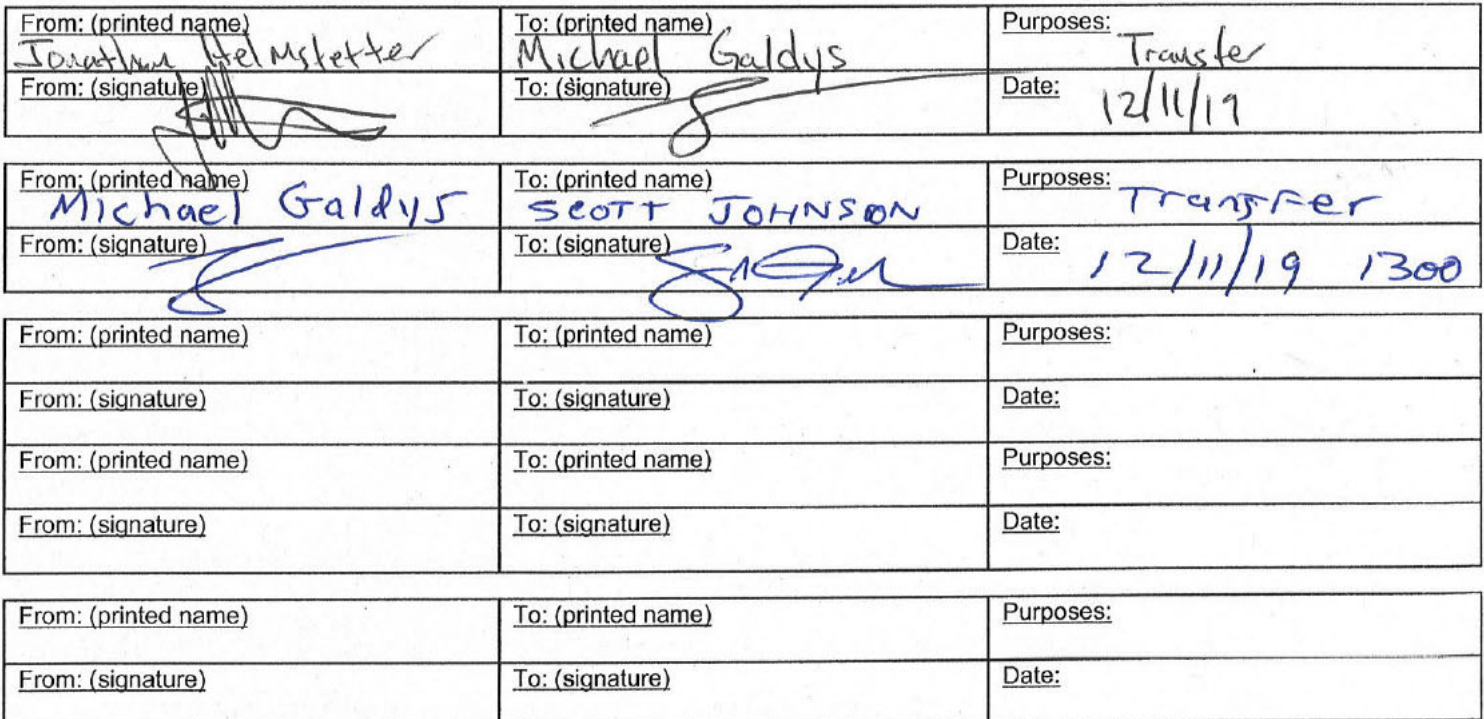 From: (printed name) To: (printed name) Purposes:
Jonathan Helmstetter Michael Galdys Transfer
From: (signature) To: (signature) Date:
12/11/19
From: (printed name) To: (printed name) Purposes:
Michael Galdys SCOTT JOHNSON Transfer
From: (signature) To: (signature) Date:
12/11/19 1300
From: (printed name) To: (printed name) Purposes:
From: (signature) To: (signature) Date:
From: (printed name) To: (printed name) Purposes:
From: (signature) To: (signature) Date:
From: (printed name) To: (printed name) Purposes:
From: (signature) To: (signature) Date: